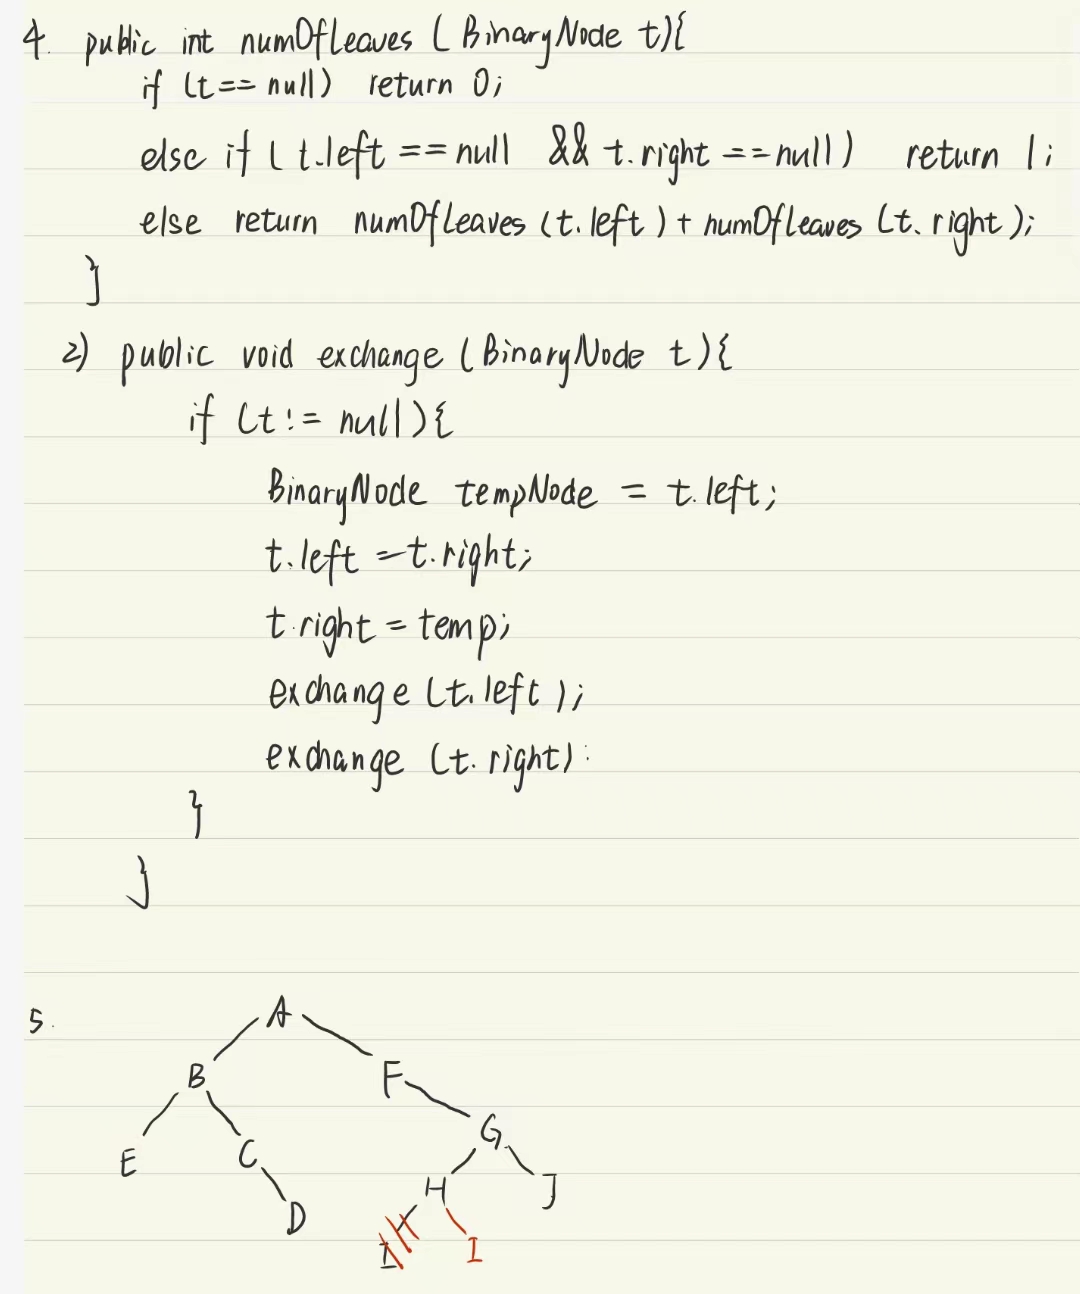 4. public int numOfLeaves (BinaryNode t){
if (t== null) return 0;
else if (t.left ==null && t.right ==null) return 1;
else return numOfLeaves (t.left) + numOfLeaves (t.right);
}
2) public void exchange (BinaryNode t){
if (t != null){
BinaryNode tempNode = t.left;
t.left =t.right;
t.right = temp;
exchange (t.left);
exchange (t.right):
}
}
5.
A
B F
G
E C
H J
D
I I